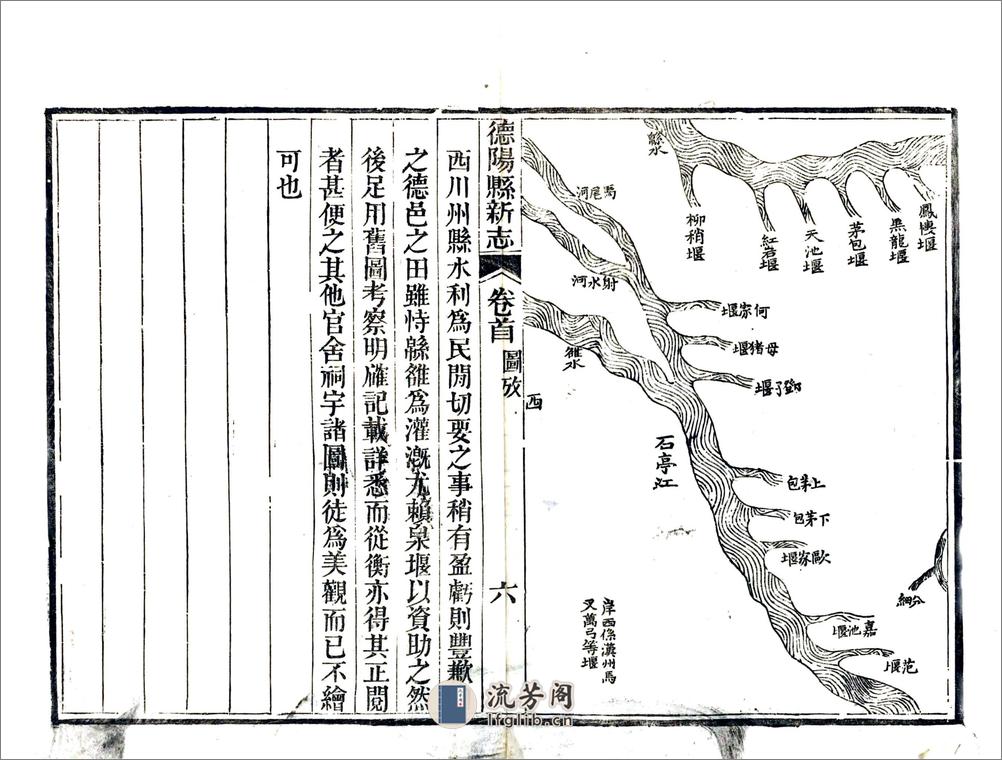 鳳樓堰
黑龍堰
茅包堰
天池堰
紅岩堰
柳稍堰
緜水
馬尾河
射水河
雒水
何家堰
母猪堰
鄧了堰
石亭江
上茅包
下茅包
歐家堰
嘉池堰
范堰
分細
岸西係漢州馬
叉萬弓等堰
西
德陽縣新志
卷首
圖攷
六
西川州縣水利爲民閒切要之事稍有盈虧則豐歉
之德邑之田雖恃緜雒爲灌漑尤賴泉堰以資助之然
後足用舊圖考察明確記載詳悉而從衡亦得其正閱
者甚便之其他官舍祠宇諸圖則徒爲美觀而已不繪
可也
流芳阁
lfglib.cn